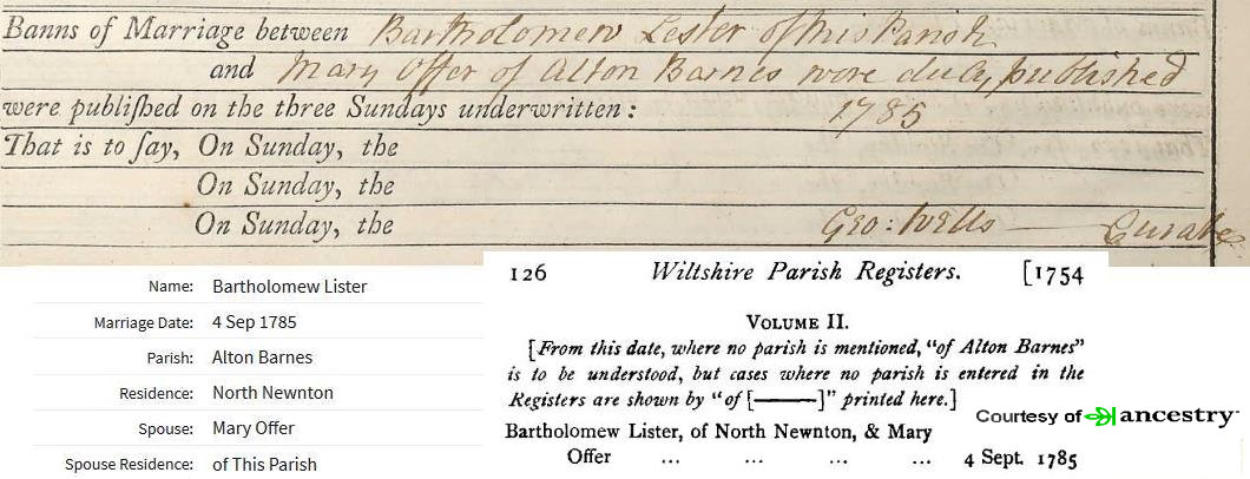 Banns of Marriage between Bartholomew Lester of this Parish
and Mary Offer of Alton Barnes were duly published
were publiſhed on the three Sundays underwritten: 1785
That is to ſay, On Sunday, the
On Sunday, the
On Sunday, the Geo: Wells — Curate
Name: Bartholomew Lister
Marriage Date: 4 Sep 1785
Parish: Alton Barnes
Residence: North Newnton
Spouse: Mary Offer
Spouse Residence: of This Parish
126 Wiltshire Parish Registers. [1754
VOLUME II.
[From this date, where no parish is mentioned, "of Alton Barnes"
is to be understood, but cases where no parish is entered in the
Registers are shown by "of [———]" printed here.]
Bartholomew Lister, of North Newnton, & Mary
Offer ... ... ... ... 4 Sept. 1785
Courtesy of ancestry